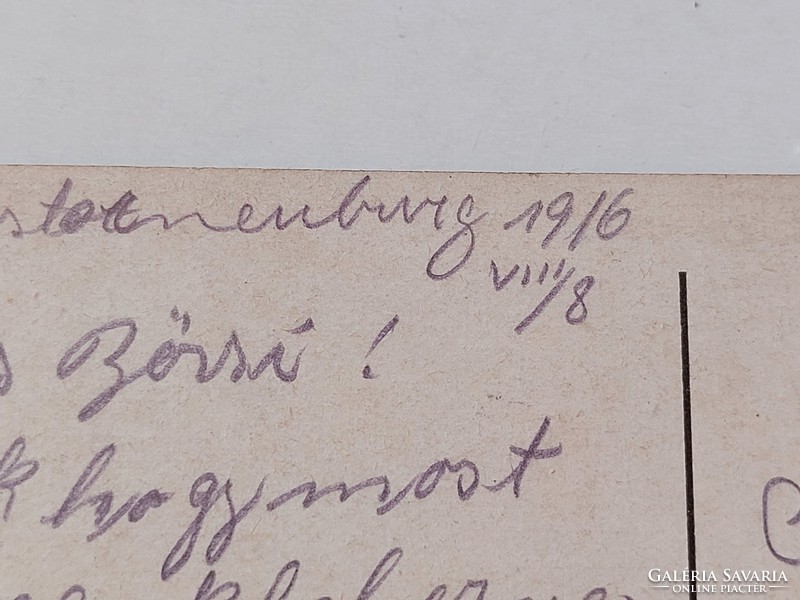 sterneuburg 1916
VIII/8
s Bözsi!
k hogy most
GALÉRIA SAVARIA
ONLINE PIACTÉR